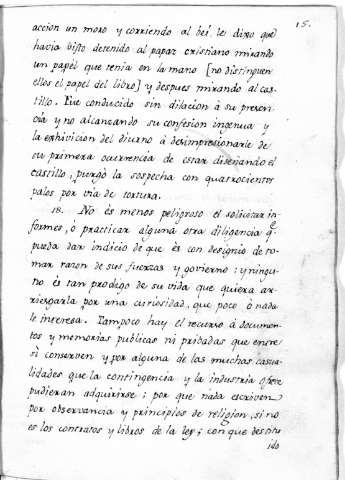 15.
accion un moro y corriendo al bei, le dixo que
havia bisto detenido al papaz cristiano mirando
un papel que tenia en la mano [no distinguen
ellos el papel del libro] y despues mirando al cas-
tillo. Fue conducido sin dilacion à su presen-
cia y no alcanzando su confesion ingenua y
la exhivicion del diurno à desimpresionarle de
su primera ocurrencia de estar diseñando el
castillo, purgò la sospecha con quatrocientos
palos por via de tortura.
18. No es menos peligroso el solicitar in-
formes, ò practicar alguna otra diligencia q.e
pueda dar indicio de que es con designio de to-
mar razon de sus fuerzas y govierno: y ningu-
no es tan prodigo de su vida que quiera ar-
riezgarla por una curiosidad, que poco ò nada
le interesa. Tampoco hay el recurso à documen-
tos y memorias publicas ni pribadas que entre
sì conserven y por alguna de las muchas casua-
lidades que la contingencia y la industria ofrece
pudieran adquirirse; por que nada escriven
por observancia y principios de religion, si no
es los contratos y libros de la ley; con que destitu
ido